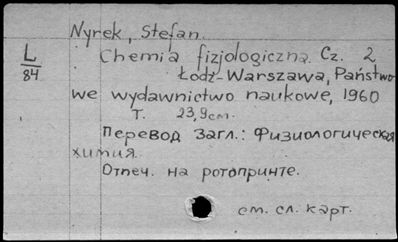 Nyrek, Stefan.
L
84
Chemia fizjologiczna. Cz. 2
Łodź-Warszawa, Państwo
we wydawnictwo naukowe, 1960
T. 23,9см.
Перевод загл.: Физиологическая
химия.
Отпеч. на ротопринте.
см. сл. карт.